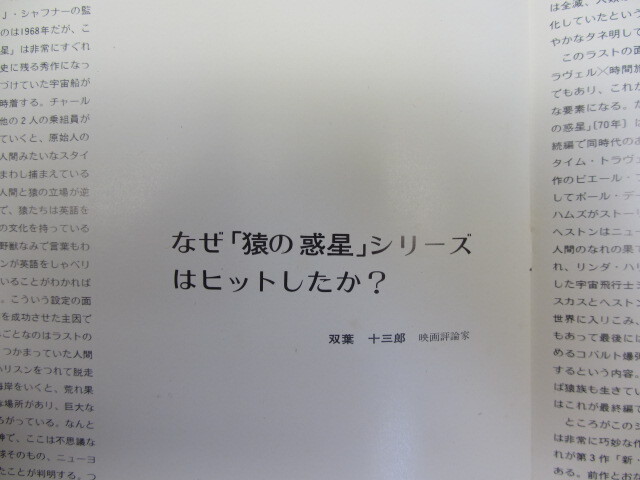 」・シャフナーの監
のは1968年だが、こ
星」は非常にすぐれ
史に残る秀作になっ
づけていた宇宙船が
時層する。チャール
他の2人の乗組員が
ていくと、原始人の
人間みたいなスタイ
まわし捕まえている
人間と猿の立場が逆
で、猿たちは英語を
の文化を持っている
野獣なみで言葉もわ
ンが英語をしゃべり
いることがわかれば
。こういう設定の面
を成功させた主因で
ごとなのはラストの
つかまっていた人間
ハリスンをつれて脱走
海岸をいくと、荒れ果
な場所があり、巨大な
ろがっている。なんと
神で、ここは不思議な
球そのもの、ニューヨ
たことが判明する。つ
なぜ「猿の惑星」シリーズ
はヒットしたか?
双葉 十三郎 映画評論家
は全滅、人類が
化していたという
やかなタネ明して
このラストの面
ラヴェル×時間旅
でもあり、これが
な要素になる。だ
の惑星」〔70年〕は
続編で同時代のあ
タイム・トラヴ
作のピエール・ブ
してポール・デー
ハムズがストー
ヘストンはニュー
人間のなれの果て
れ、リンダ・ハリ
した宇宙飛行士ジ
スカスとヘストン
世界に入りこみ、
もあって最後には
めるコバルト爆弾
するという内容。
ば猿族も生きてい
はこれが最終編で
ところがこのシ
は非常に巧妙な作
れが第3作「新・
ある。前作とおな